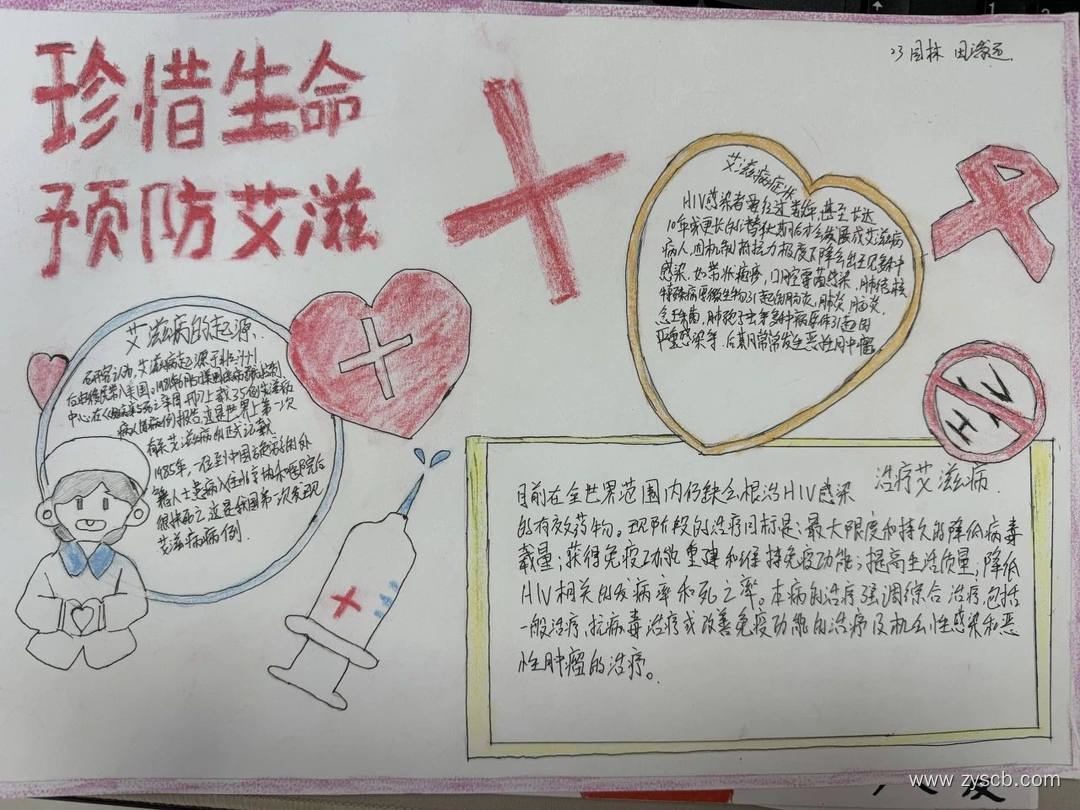 珍惜生命
预防艾滋
23园林
艾滋病的起源
有研究认为,艾滋病起源于非洲,
后由移民带入美国。
病人的病例报告,这是世界上第一次
有关艾滋病的正式记载
1985年,一位到中国旅游的外
籍人士患病入住北京协和医院后
很快死亡,这是我国第一次发现
艾滋病病例.
艾滋病症状
HIV感染者要经过数年,甚至长达
10年或更长的潜伏期后才会发展成艾滋病
病人,因机制抵抗力极度下降会出现多种
感染.如带状疱疹,口腔霉菌感染,肺结核
特殊病原微生物引起的肠炎,肺炎,脑炎,
严重感染等,后期常常发生恶性肿瘤。
HIV
治疗艾滋病.
目前在全世界范围内仍缺乏根治HIV感染
的有效药物。现阶段的治疗目标是:最大限度和持久的降低病毒
载量;获得免疫功能重建和维持免疫功能;提高生活质量;降低
HIV相关的发病率和死亡率。本病的治疗强调综合治疗,包括
一般治疗、抗病毒治疗或改善免疫功能的治疗及机会性感染和恶
性肿瘤的治疗。
www.zyscb.com